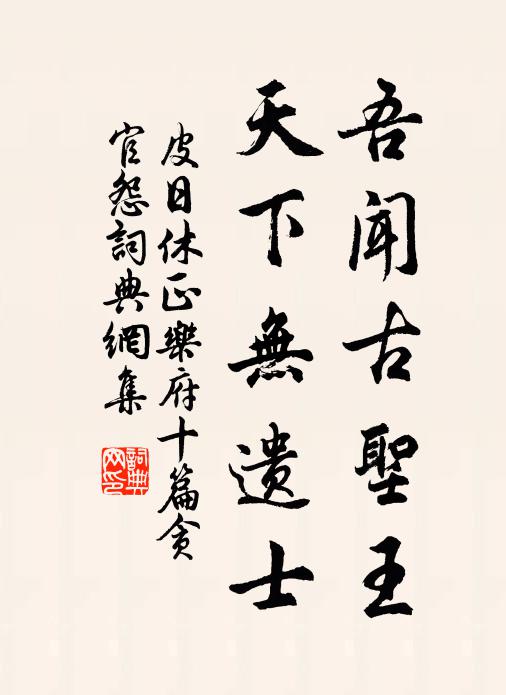 吾闻古聖王
天下無遗士
皮日休正樂府十篇贪
官怨詞典網集
詞典
网印